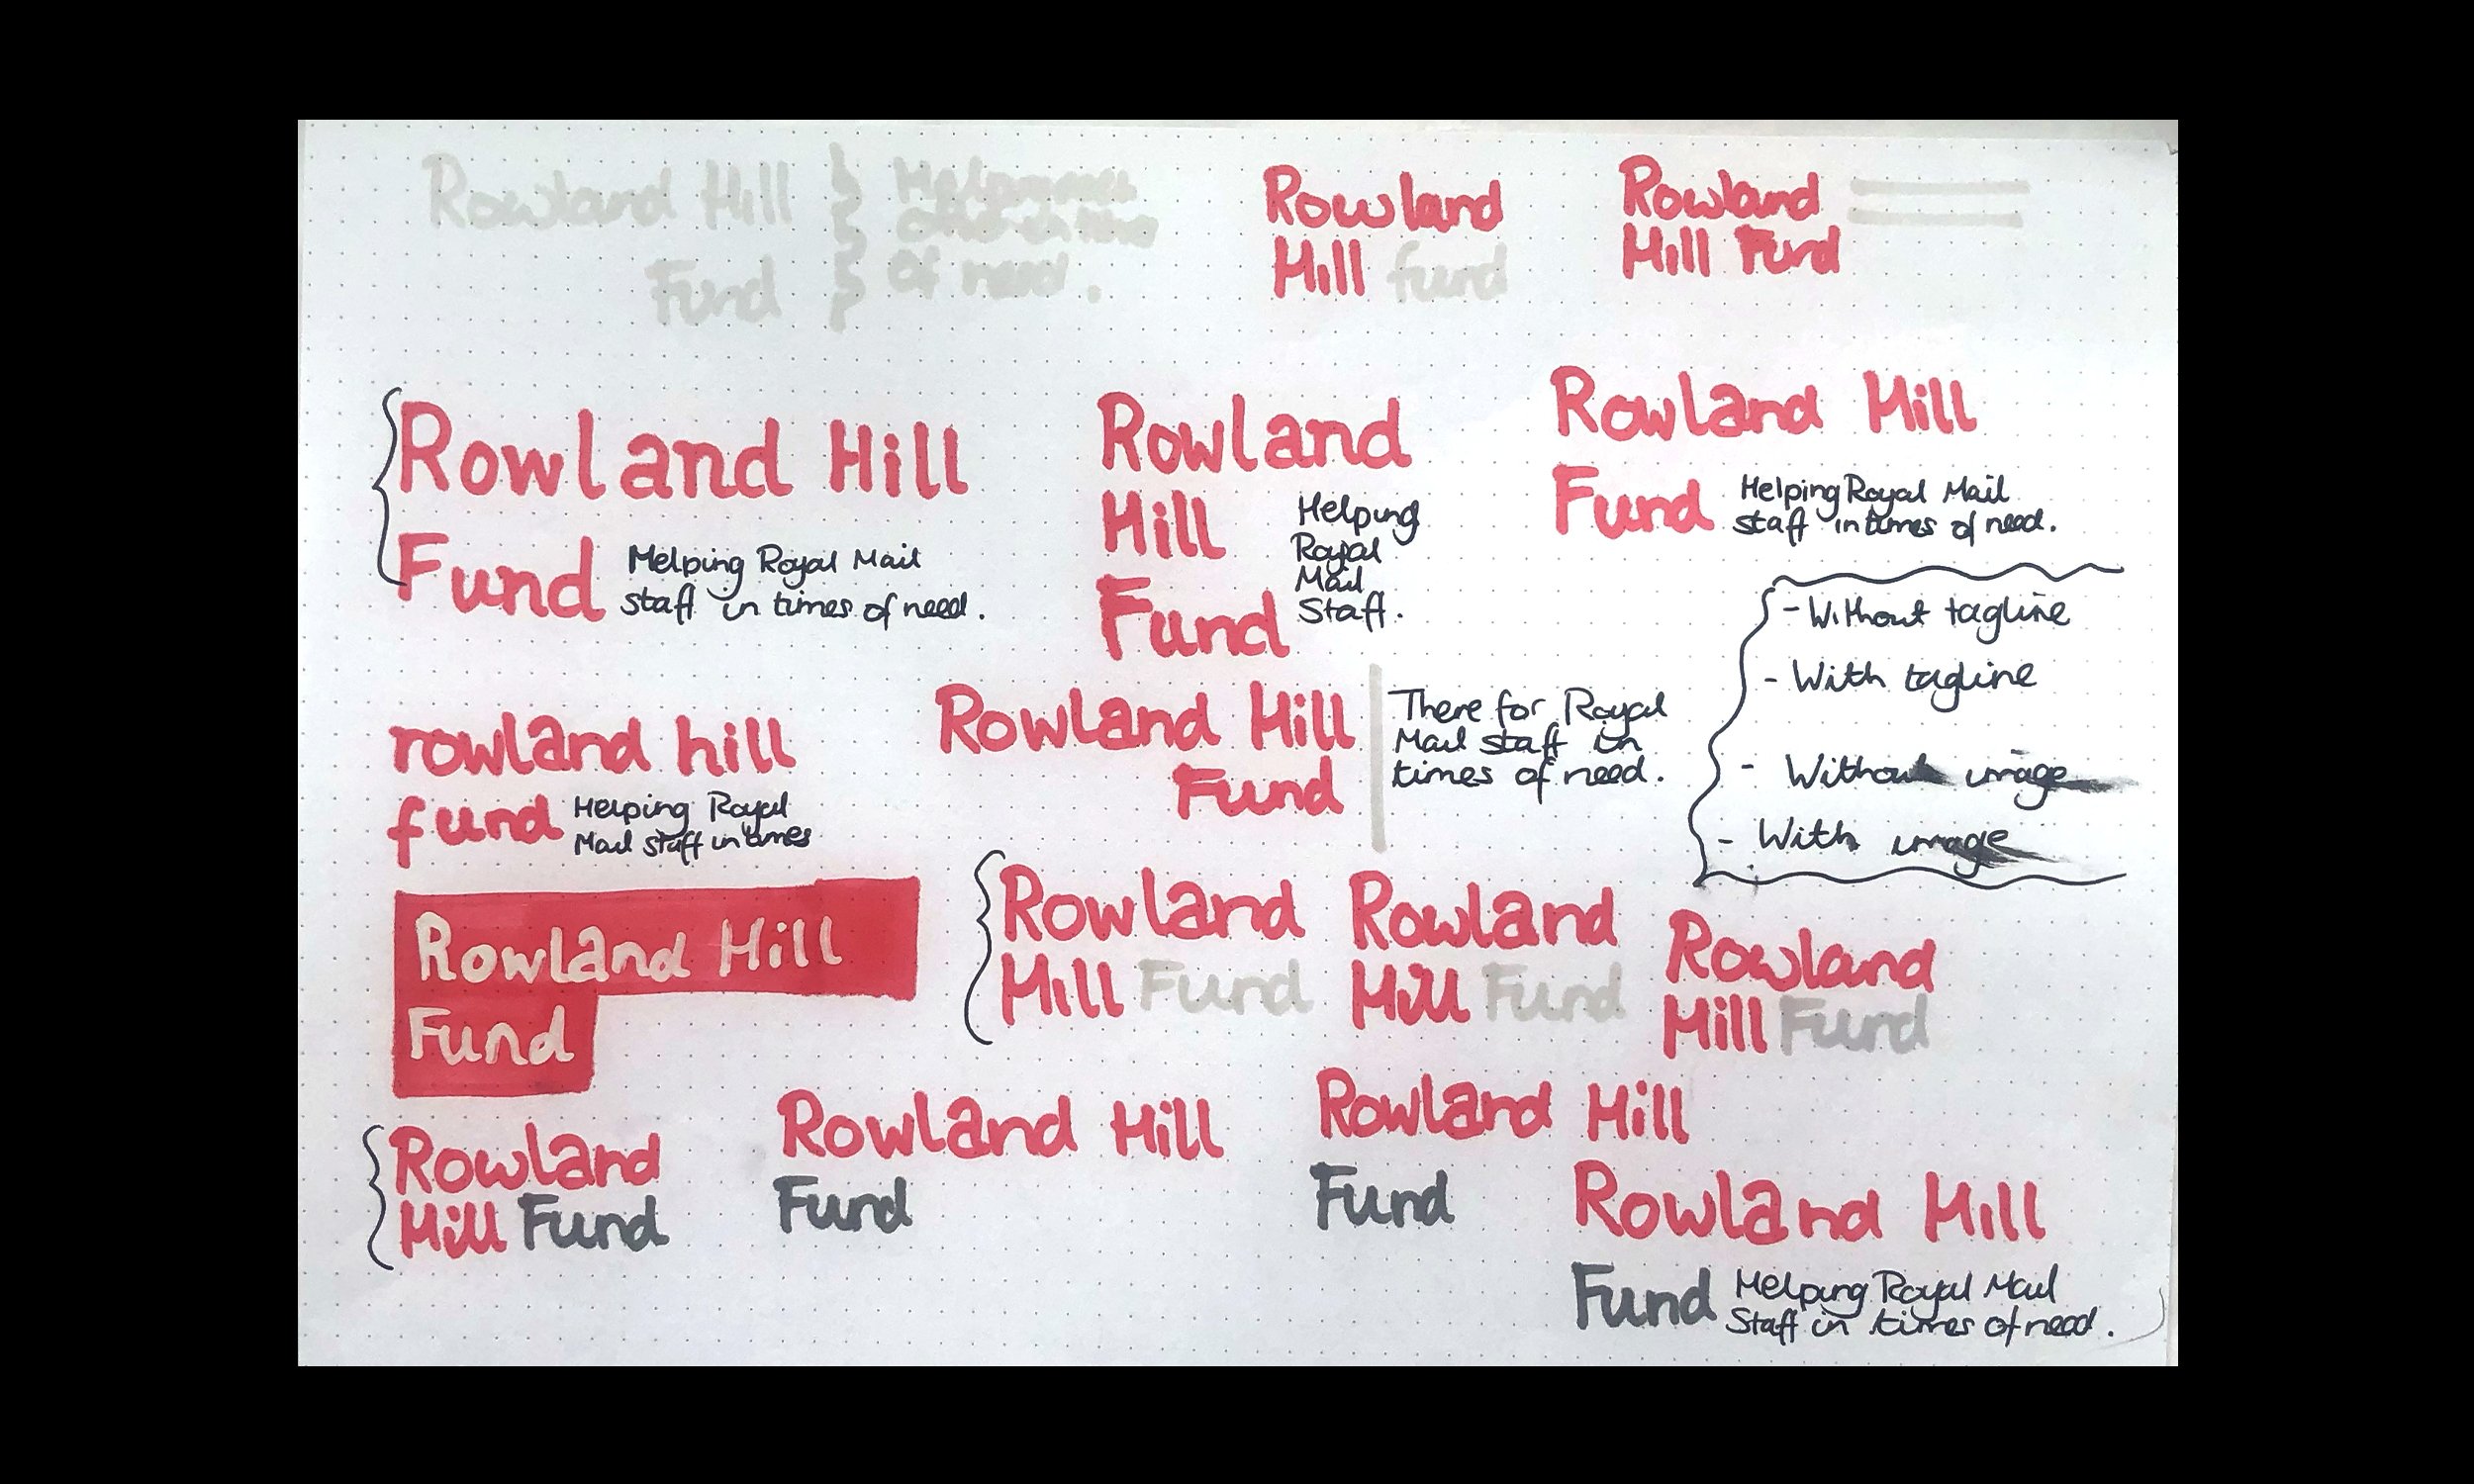 Rowland Hill
Fund
of need.
Rowland
Hill fund
Rowland
Hill Fund
Rowland Hill
Fund
Helping Royal Mail
staff in times of need.
Rowland
Hill
Fund
Helping
Royal
Mail
Staff.
Rowland Hill
Fund
Helping Royal Mail
staff in times of need.
- Without tagline
- With tagline
- Without image
- With image
rowland hill
fund
Helping Royal
Mail staff in times
Rowland Hill
Fund
There for Royal
Mail staff in
times of need.
Rowland Hill
Fund
Rowland
Hill Fund
Rowland
Hill Fund
Rowland
Hill Fund
Rowland
Hill Fund
Rowland Hill
Fund
Rowland Hill
Fund
Rowland Hill
Fund
Helping Royal Mail
Staff in times of need.